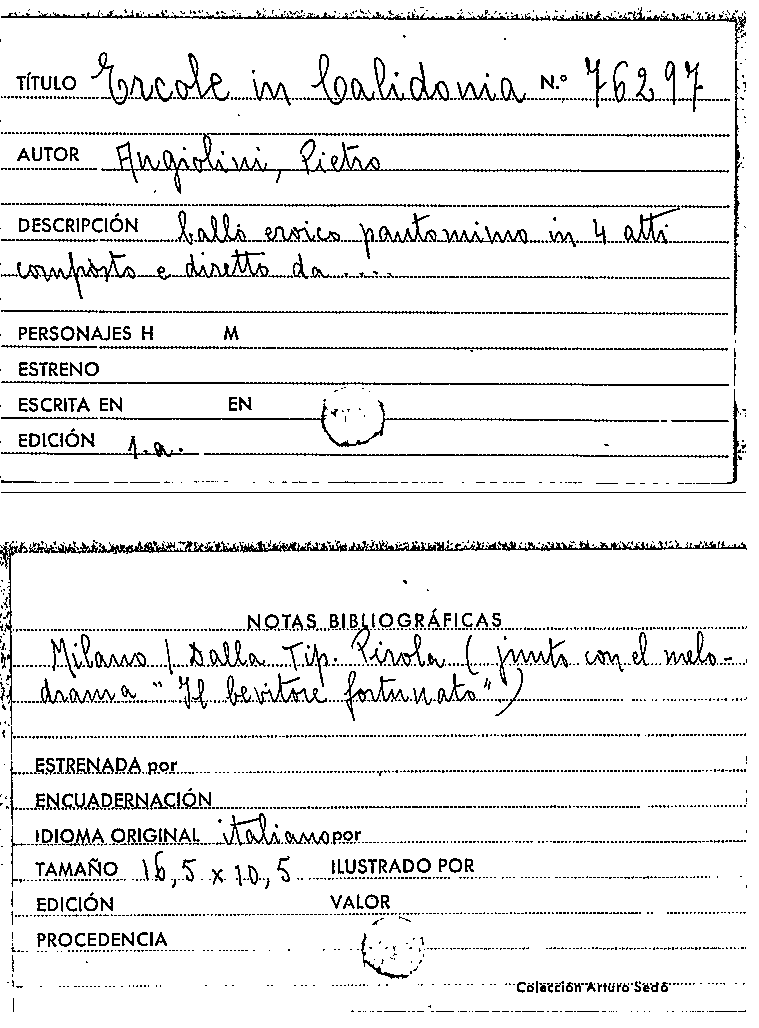 TÍTULO Ercole in Calidonia N.º 76297
AUTOR Angiolini, Pietro
DESCRIPCIÓN ballo eroico pantomimo in 4 atti
composto e diretto da ....
PERSONAJES H M
ESTRENO
ESCRITA EN EN
EDICIÓN s.a.
NOTAS BIBLIOGRÁFICAS
Milano / Dalla Tip. Pirola ( junto con el melo-
drama "Il bevitore fortunato")
ESTRENADA por
ENCUADERNACIÓN
IDIOMA ORIGINAL italiano por
TAMAÑO 16,5 x 10,5 ILUSTRADO POR
EDICIÓN VALOR
PROCEDENCIA
Colección Arturo Sedó